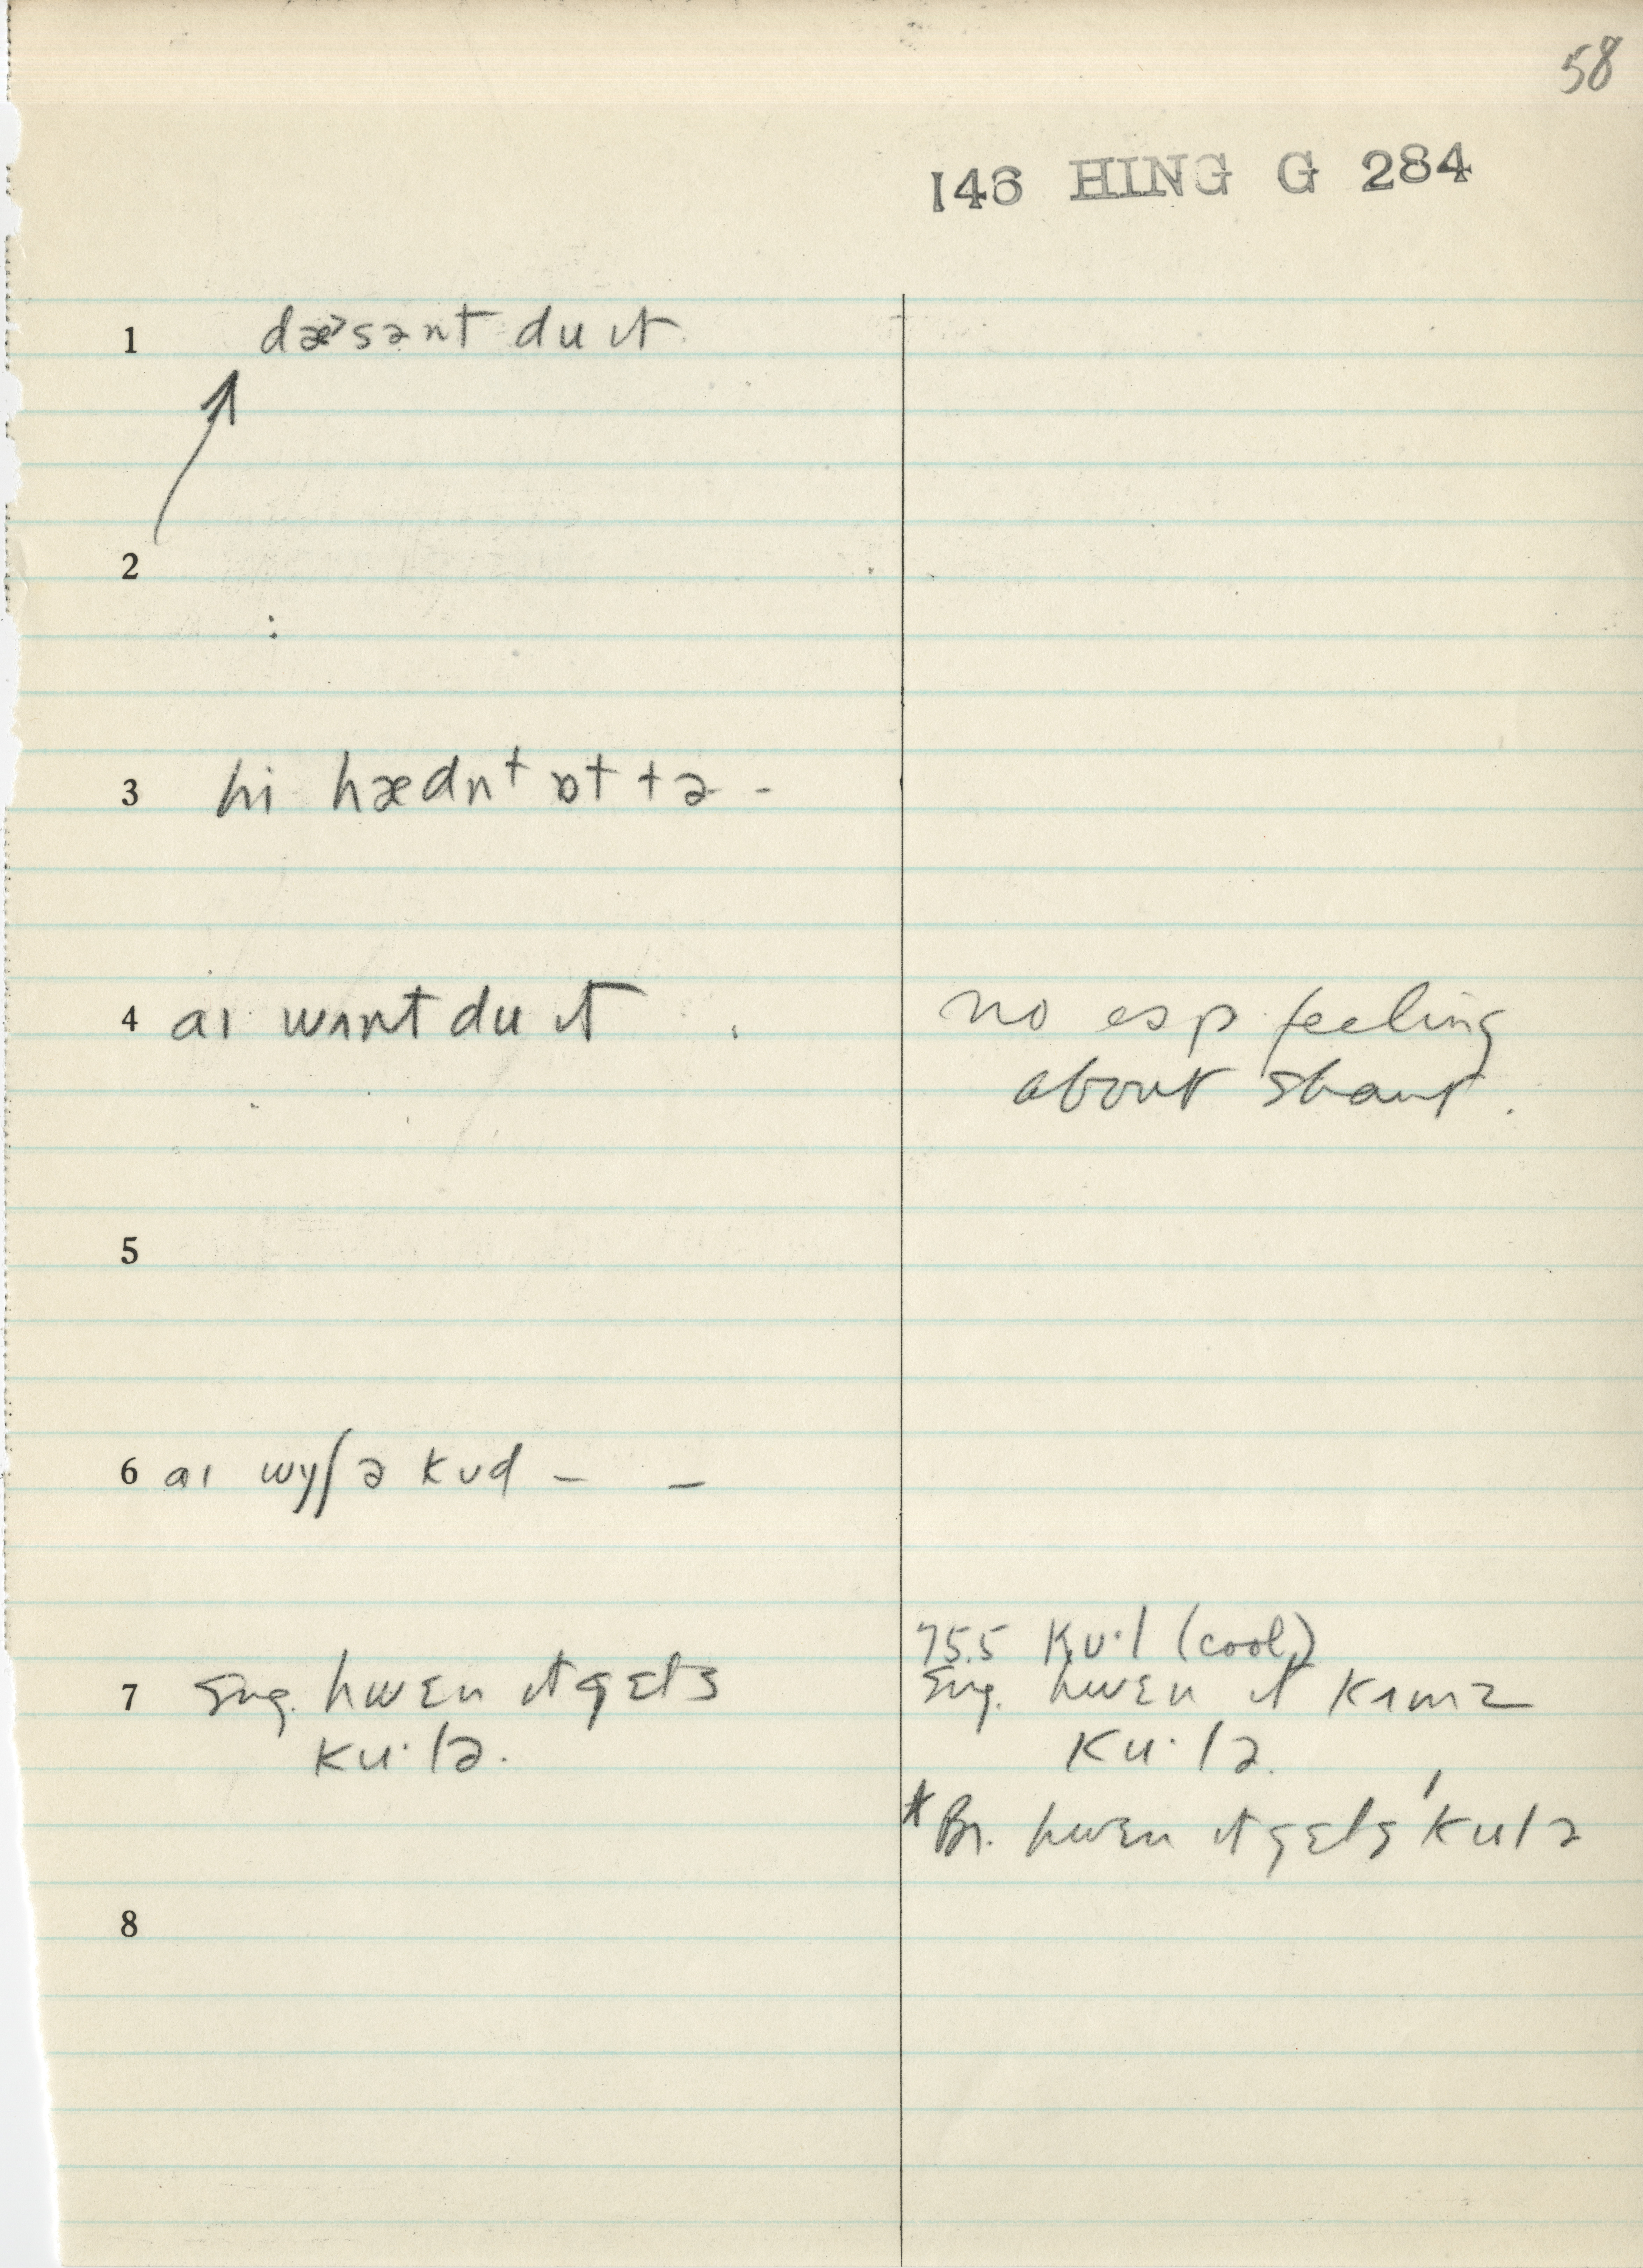 58
146 HING G 284
1 dæ˃sənt du ɪt
2
:
3 hi hædnt ɒt tə -
4 aɪ wʌnt du ɪt
no esp feeling
about shant.
5
6 aɪ wyʃ ə kʊd – –
7 Sug. hwɛn ɪt gɛts
ku·lə.
75.5 kʊ·l (cool)
Sug. hwɛn ɪt kʌmz
ku·lə.
*Br. hwɛn ɪt gɛts ku lə
8